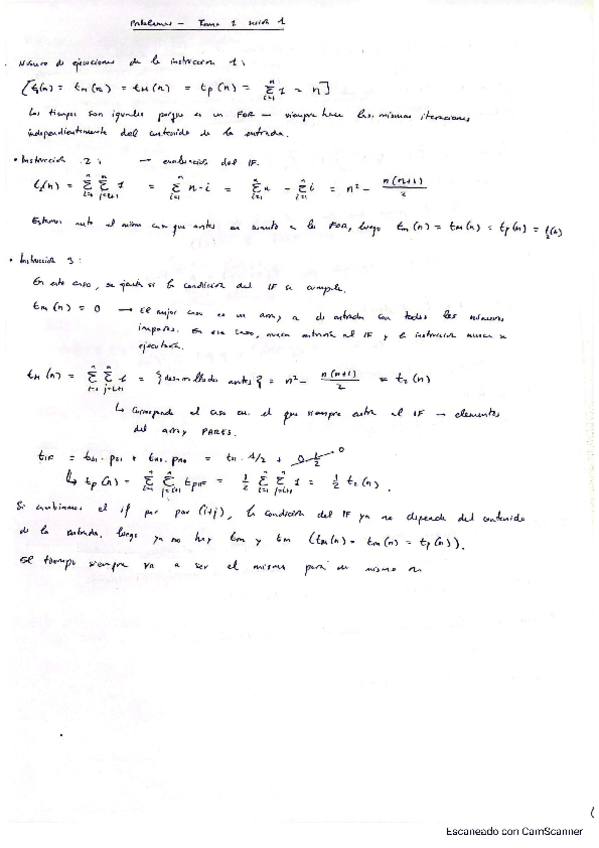 Problemas – Tema 1 sesión 1
· Número de ejecuciones de la instrucción 1:
[t₁(n) = tm(n) = tM(n) = tp(n) = Σᵢ₌₁ⁿ 1 = n]
Los tiempos son iguales porque es un FOR – siempre hace las mismas iteraciones
independientemente del contenido de la entrada.
• Instrucción 2: → evaluación del IF.
t₂(n) = Σᵢ₌₁ⁿ Σⱼ₌ᵢ₊₁ⁿ 1 = Σᵢ₌₁ⁿ n-i = Σᵢ₌₁ⁿ n - Σᵢ₌₁ⁿ i = n² - n(n+1)/2
Estamos ante el mismo caso que antes en cuanto a los FOR, luego tm(n) = tM(n) = tp(n) = t₂(n)
• Instrucción 3:
En este caso, se ejecuta si la condición del IF se cumple.
tm(n) = 0 → El mejor caso es un array a de entrada con todos los números
impares. En ese caso, nunca entraría al IF y la instrucción nunca se
ejecutaría.
tM(n) = Σᵢ₌₁ⁿ Σⱼ₌ᵢ₊₁ⁿ 1 = {desarrollado antes} = n² - n(n+1)/2 = t₂(n)
↳ Corresponde al caso en el que siempre entra al IF – elementos
del array PARES.
tIF = tsi · psi + tno · pno = 1/2 + 0 · 1/2 0
↳ tp(n) = Σᵢ₌₁ⁿ Σⱼ₌ᵢ₊₁ⁿ tpIF = 1/2 Σᵢ₌₁ⁿ Σⱼ₌ᵢ₊₁ⁿ 1 = 1/2 t₂(n).
Si cambiamos el if por par(i+j), la condición del IF ya no depende del contenido
de la entrada, luego ya no hay tm y tM (tm(n) = tM(n) = tp(n)).
El tiempo siempre va a ser el mismo para un mismo n
Escaneado con CamScanner